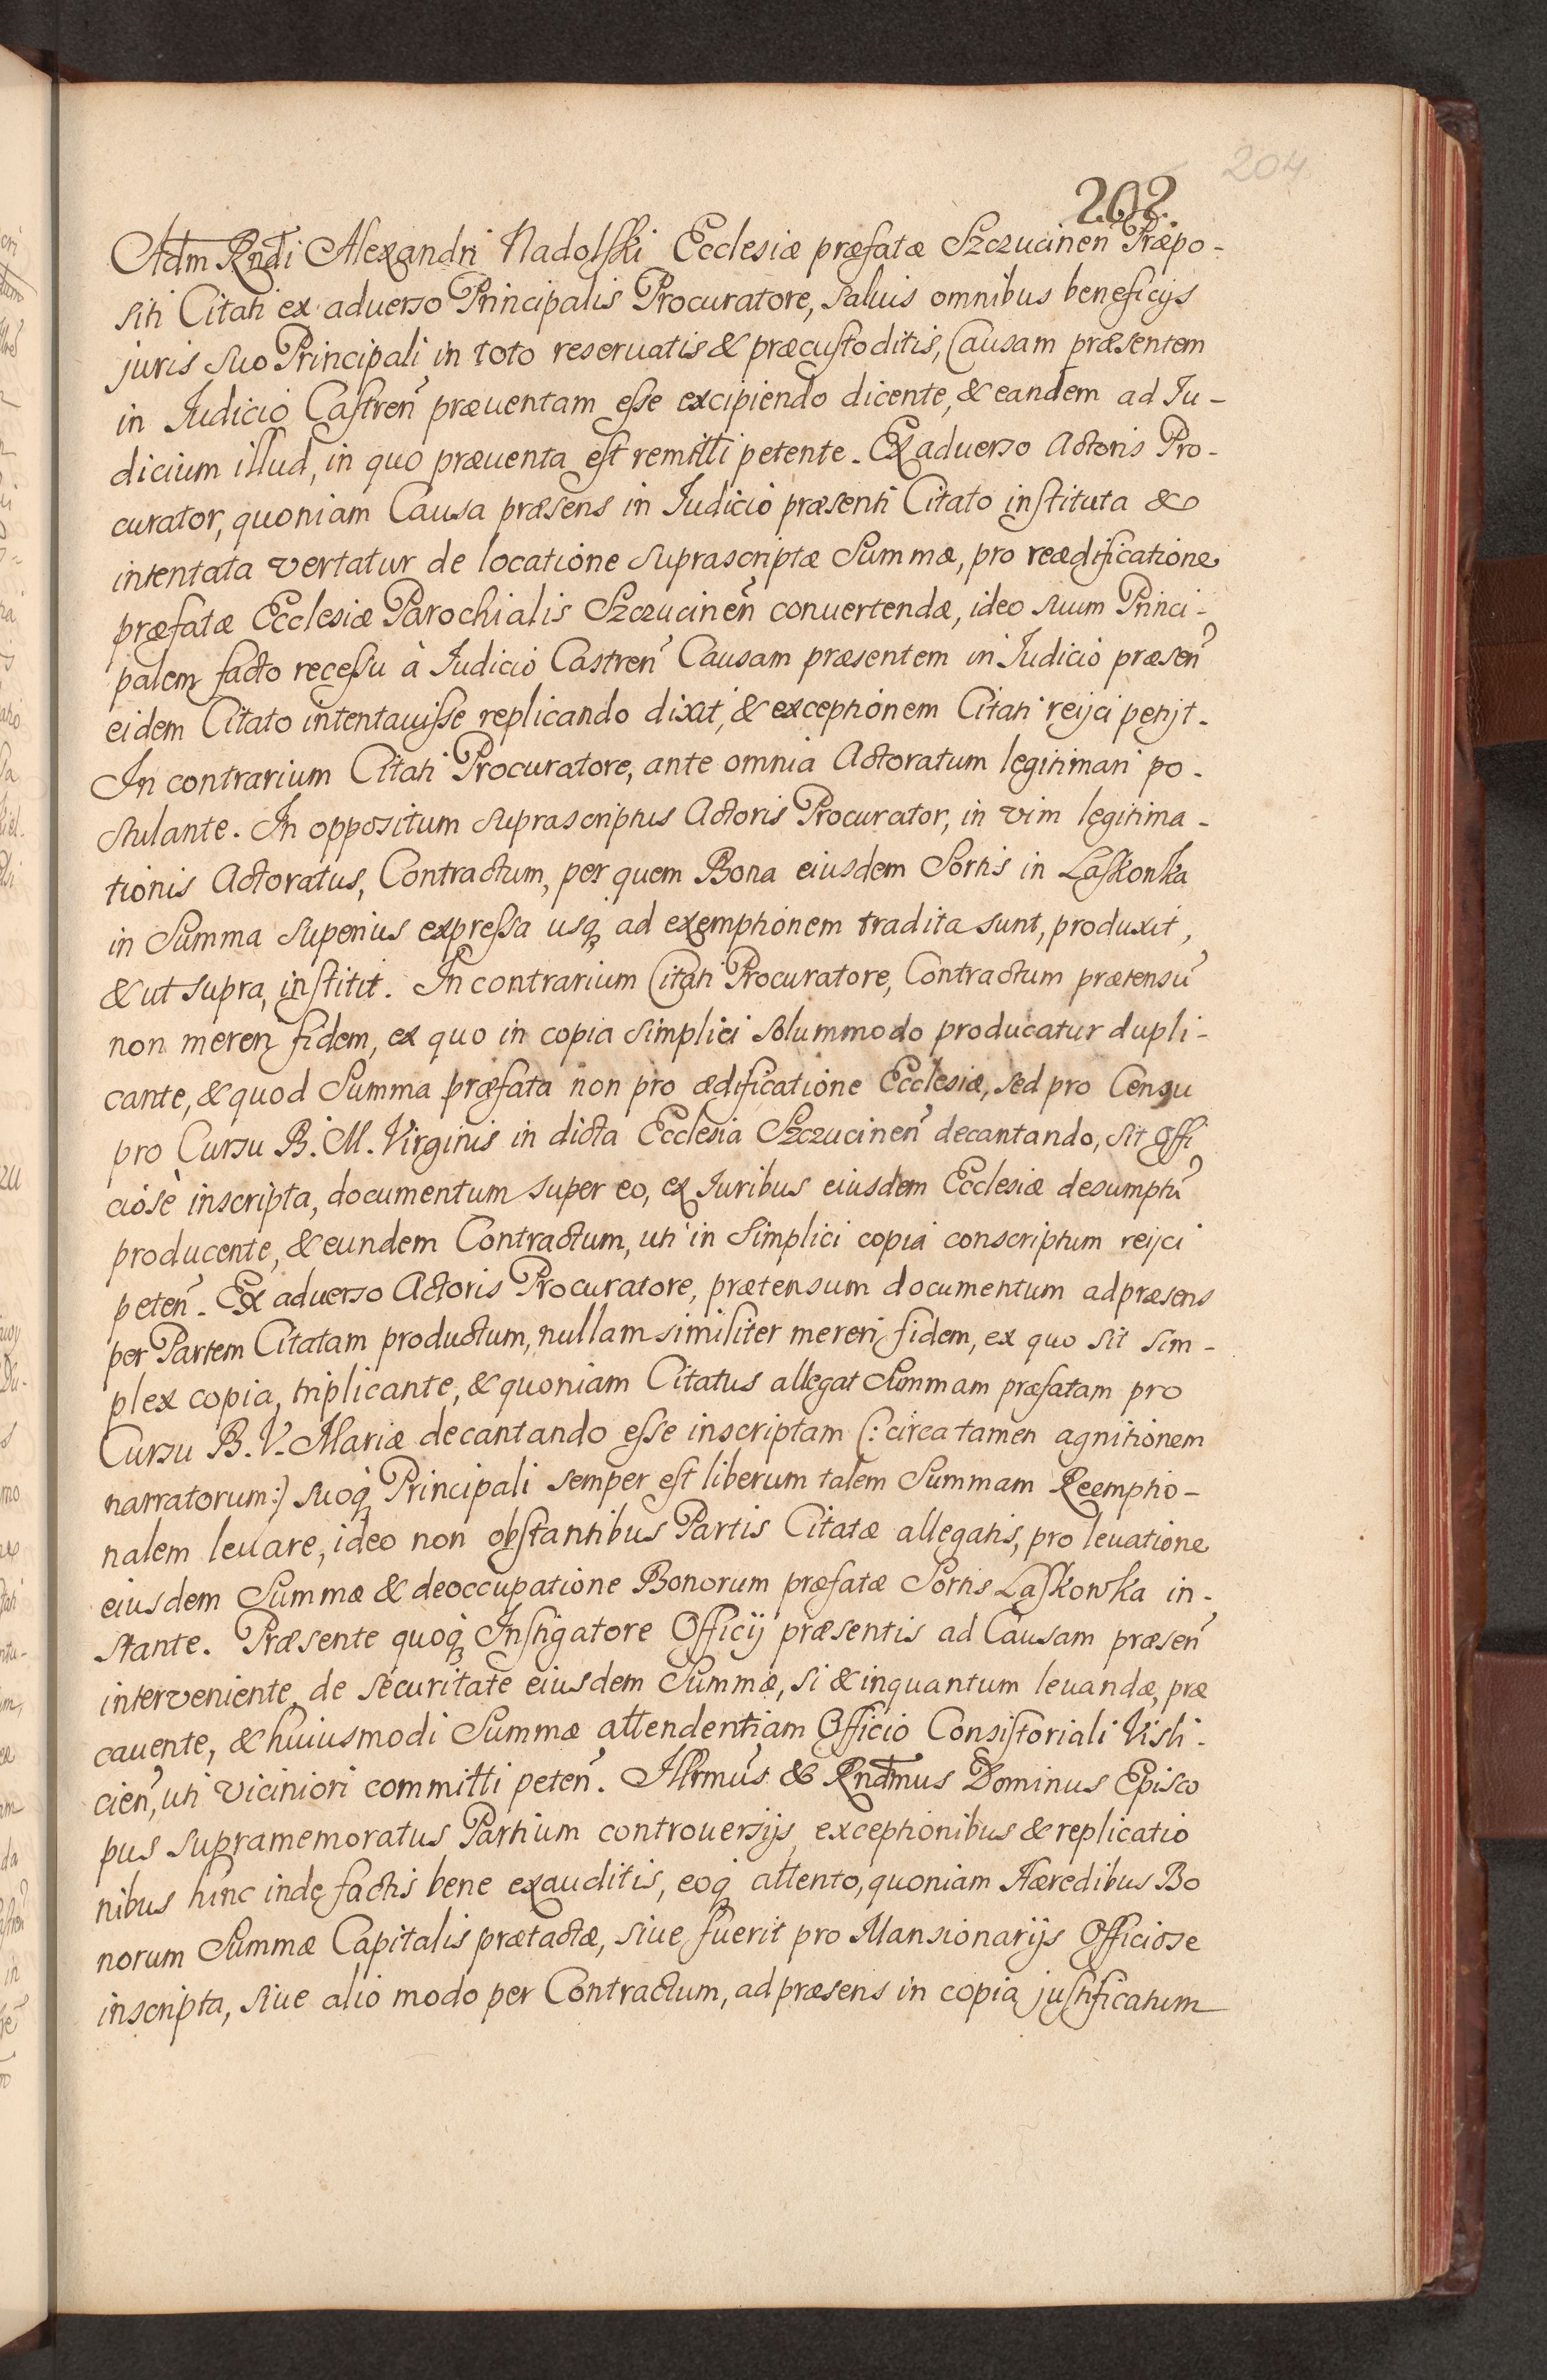 204
202.
Adm Rndi Alexandri Nadolski Ecclesiæ præfatæ Szczucinen Præpo-
siti Citati ex aduerso Principalis Procuratore, saluis omnibus beneficijs
juris suo Principali in toto reseruatis & præcustoditis, Causam præsentem
in Judicio Castren præuentam esse excipiendo dicente, & eandem ad Ju-
dicium illud, in quo præuenta est remitti petente. Ex aduerso Actoris Pro-
curator, quoniam Causa præsens in Judicio præsenti Citato instituta &
intentata vertatur de locatione suprascriptæ Summæ, pro reædificatione
præfatæ Ecclesiæ Parochialis Szczucinen conuertendæ, ideo suum Princi-
palem facto recessu à Judicio Castren Causam præsentem in Judicio præsen
eidem Citato intentauisse replicando dixit, & exceptionem Citati reijci petijt.
In contrarium Citati Procuratore, ante omnia Actoratum legitimari po-
stulante. In oppositum suprascriptus Actoris Procurator, in vim legitima-
tionis Actoratus, Contractum, per quem Bona eiusdem Sortis in Laskonka
in Summa superius expressa usq ad exemptionem tradita sunt, produxit,
& ut supra, institit. In contrarium Citati Procuratore, Contractum prætensu
non mereri fidem, ex quo in copia simplici solummodo producatur dupli-
cante, & quod Summa præfata non pro ædificatione Ecclesiæ, sed pro Censu
pro Cursu B. M. Virginis in dicta Ecclesia Szczucinen decantando, sit Offi
ciosè inscripta, documentum super eo, ex Juribus eiusdem Ecclesiæ desumptu
producente, & eundem Contractum, uti in simplici copia conscriptum reijci
peten. Ex aduerso Actoris Procuratore, prætensum documentum ad præsens
per Partem Citatam productum, nullam similiter mereri fidem, ex quo sit sim-
plex copia, triplicante, & quoniam Citatus allegat Summam præfatam pro
Cursu B. V. Mariæ decantando esse inscriptam (: circa tamen agnitionem
narratorum:) suoq Principali semper est liberum talem Summam Reemptio-
nalem leuare, ideo non obstantibus Partis Citatæ allegatis, pro leuatione
eiusdem Summæ & deoccupatione Bonorum præfatæ Sortis Laskowka in-
stante. Præsente quoq Instigatore Officij præsentis ad Causam præsen
interveniente, de securitate eiusdem Summæ, si & inquantum leuandæ, præ
cauente, & huiusmodi Summæ attendentiam Officio Consistoriali Visli-
cien, uti viciniori committi peten. Illrmus & Rndmus Dominus Episco
pus supramemoratus Partium controuersijs, exceptionibus & replicatio
nibus hinc inde factis bene exauditis, eoq attento, quoniam Hæredibus Bo
norum Summæ Capitalis prætactæ, siue fuerit pro Mansionarijs Officiose
inscripta, siue alio modo per Contractum, ad præsens in copia justificatum